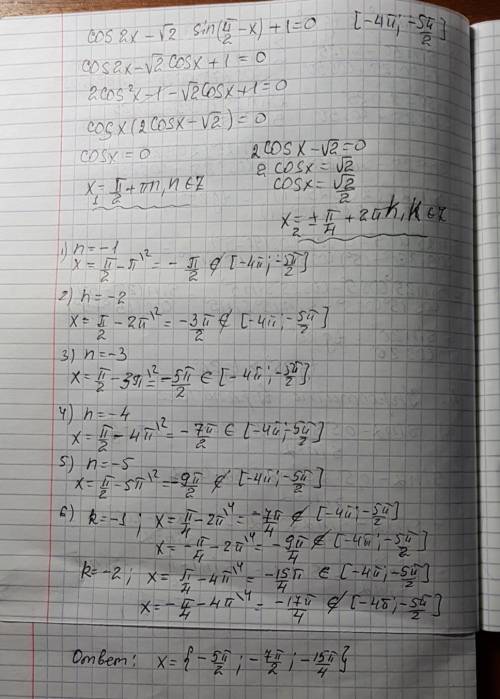 cos2x - √2 sin(π/2 - x) + 1 = 0 [-4π; -5π/2]
cos2x - √2 cosx + 1 = 0
2cos²x - 1 - √2 cosx + 1 = 0
cosx(2cosx - √2) = 0
cosx = 0 2cosx - √2 = 0
2 cosx = √2
cosx = √2/2
x₁ = π/2 + πn, n ∈ Z
x₂ = ± π/4 + 2πk, k ∈ Z
1) n = -1
x = π/2 - π\² = - π/2 ∉ [-4π; -5π/2]
2) n = -2
x = π/2 - 2π\² = -3π/2 ∉ [-4π; -5π/2]
3) n = -3
x = π/2 - 3π\² = -5π/2 ∈ [-4π; -5π/2]
4) n = -4
x = π/2 - 4π\² = -7π/2 ∈ [-4π; -5π/2]
5) n = -5
x = π/2 - 5π\² = -9π/2 ∉ [-4π; -5π/2]
6) k = -1; x = π/4 - 2π\⁴ = -7π/4 ∉ [-4π; -5π/2]
x = -π/4 - 2π\⁴ = -9π/4 ∉ [-4π; -5π/2]
k = -2; x = π/4 - 4π\⁴ = -15π/4 ∈ [-4π; -5π/2]
x = -π/4 - 4π\⁴ = -17π/4 ∉ [-4π; -5π/2]
Ответ: x = {-5π/2; -7π/2; -15π/4}